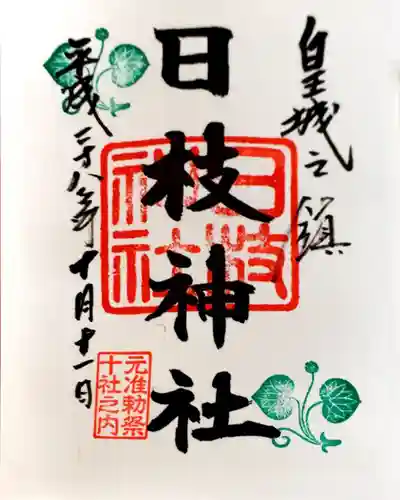 皇城之鎮
日枝神社
平成二十八年十月十一日
日枝
神社
元准勅祭
十社之内